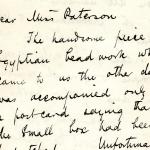 ear Miss Paterson
The handsome piece
Egyptian bead work wh
came to us the other da
was accompanied only
post-card saying tha
the small box had been
Unfortuna